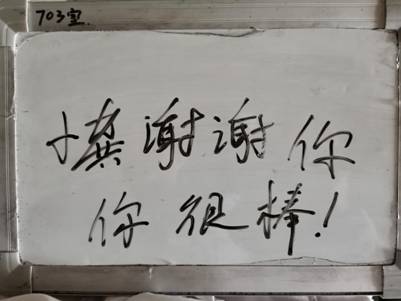 703室
小龚谢谢你
你很棒!